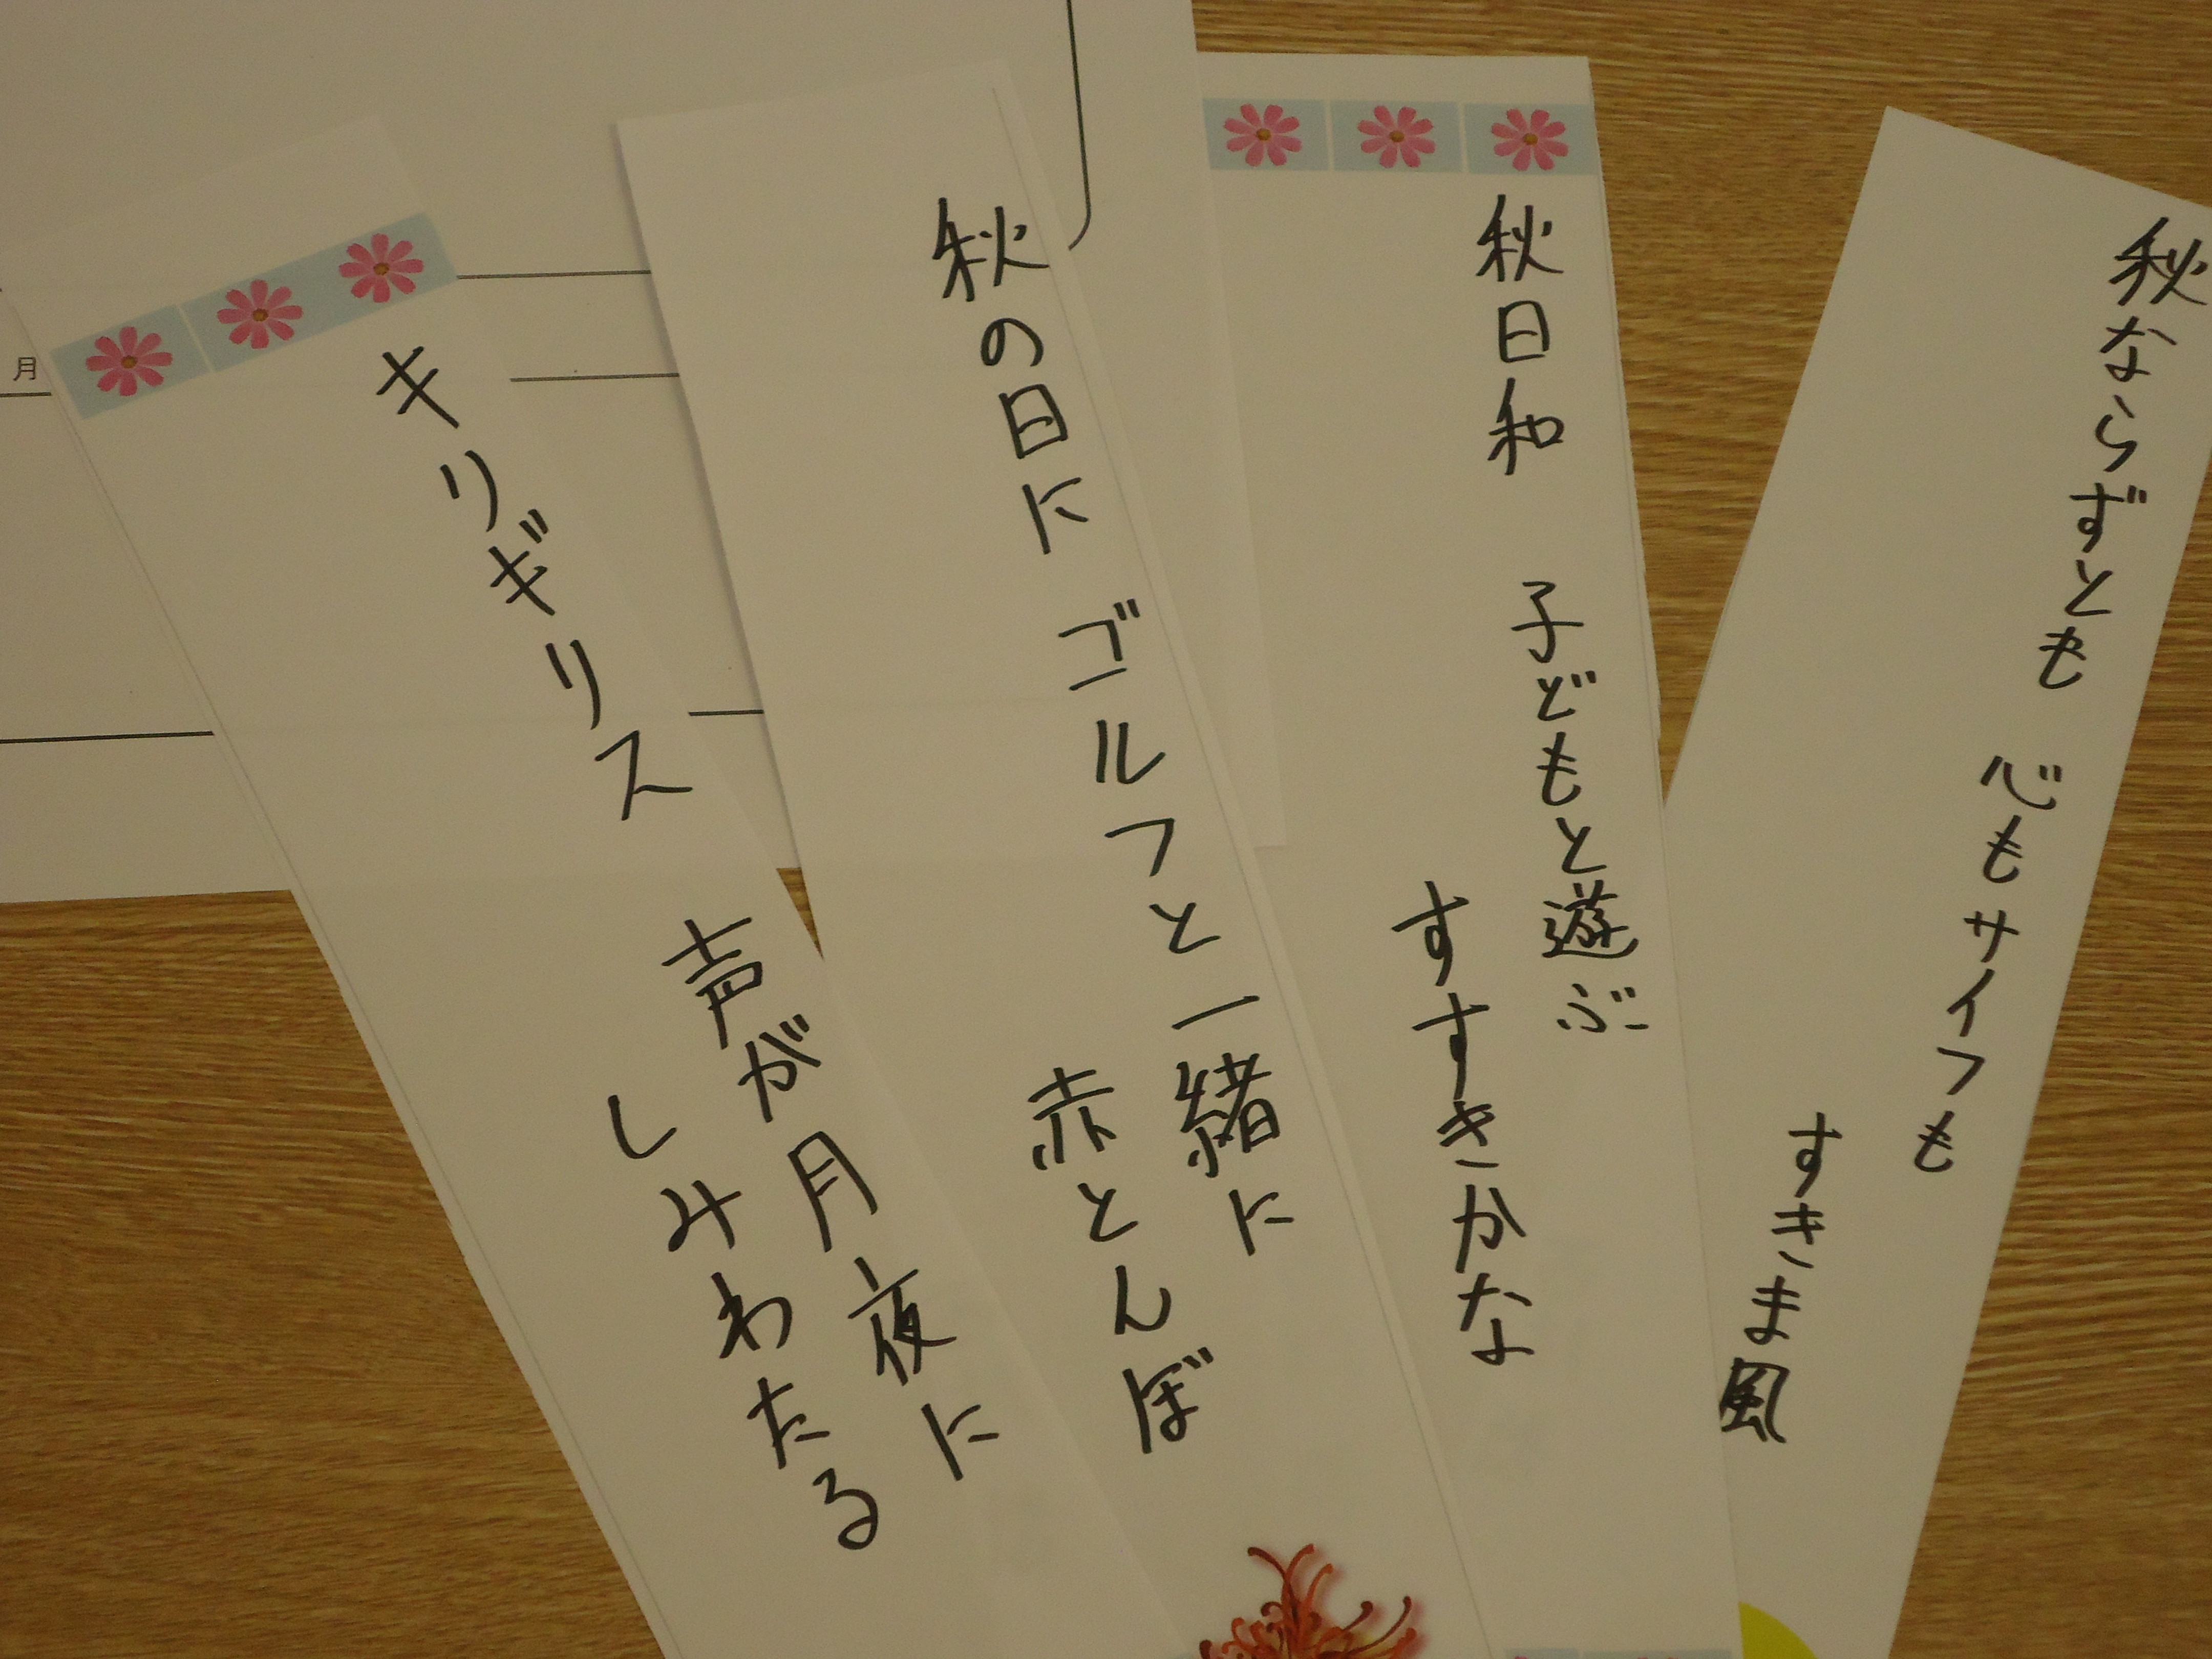 秋ならずとも 心もサイフも
すきま風
秋日和 子どもと遊ぶ
すすきかな
秋の日に ゴルフと一緒に
赤とんぼ
キリギリス 声が月夜に
しみわたる
月